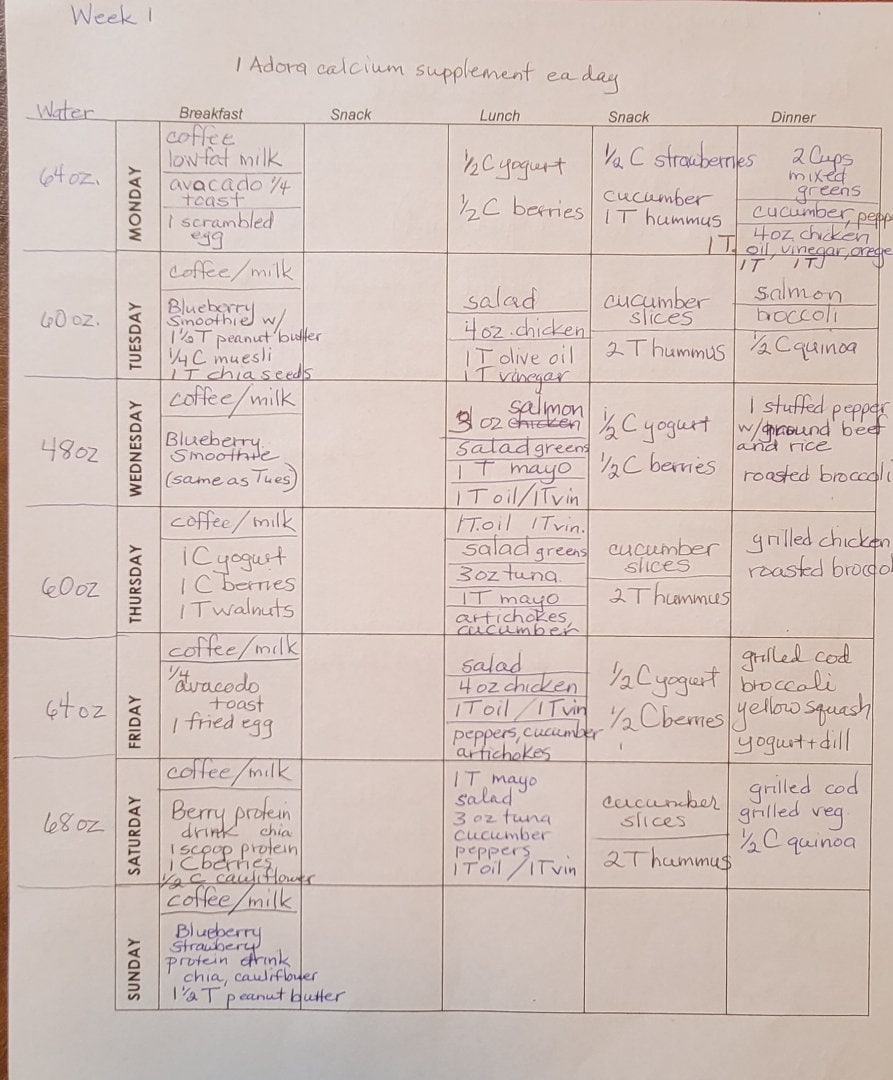 Week 1
1 Adora calcium supplement ea day
Water
Breakfast
Snack
Lunch
Snack
Dinner
64oz.
MONDAY
coffee
lowfat milk
avacado 1/4
toast
1 scrambled
egg
1/2 C yogurt
1/2 C berries
1/2 C strawberries
cucumber
1 T hummus
2 Cups
mixed
greens
cucumber, pepp
4oz chicken
1 T. oil, vinegar, orege
1T 1T
60oz.
TUESDAY
coffee/milk
Blueberry
Smoothie w/
1 1/2 T peanut butter
1/4 C muesli
1 T chia seeds
salad
4oz. chicken
1 T olive oil
1 T vinegar
cucumber
slices
2 T hummus
salmon
broccoli
1/2 C quinoa
48oz
WEDNESDAY
coffee/milk
Blueberry
Smoothie
(same as Tues)
salmon
3 oz chicken
salad greens
1 T mayo
1 T oil/1T vin
1/2 C yogurt
1/2 C berries
1 stuffed pepper
w/ground beef
and rice
roasted broccoli
60oz
THURSDAY
coffee/milk
1 C yogurt
1 C berries
1 T walnuts
1T. oil 1T vin.
salad greens
3oz tuna
1T mayo
artichokes,
cucumber
cucumber
slices
2 T hummus
grilled chicken
roasted broccol
64oz
FRIDAY
coffee/milk
1/4
avacodo
toast
1 fried egg
salad
4oz chicken
1 T oil / 1 T vin
peppers, cucumber
artichokes
1/2 C yogurt
1/2 C berries
grilled cod
broccoli
yellow squash
yogurt + dill
68oz
SATURDAY
coffee/milk
Berry protein
drink chia
1 scoop protein
1 C berries
1/2 C cauliflower
1 T mayo
salad
3 oz tuna
cucumber
peppers
1 T oil / 1 T vin
cucumber
slices
2 T hummus
grilled cod
grilled veg
1/2 C quinoa
SUNDAY
coffee/milk
Blueberry
Strawbery
protein drink
chia, cauliflower
1 1/2 T peanut butter